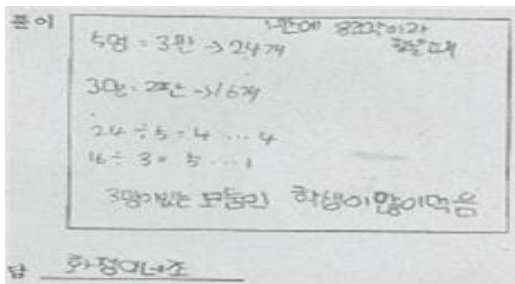 풀이
1판에 8조각이라
5명 = 3판 → 24개
3명 = 2판 → 16개
24 ÷ 5 = 4 … 4
16 ÷ 3 = 5 … 1
3명가있는 모둠인 학생이많이먹음
답 화정이네조